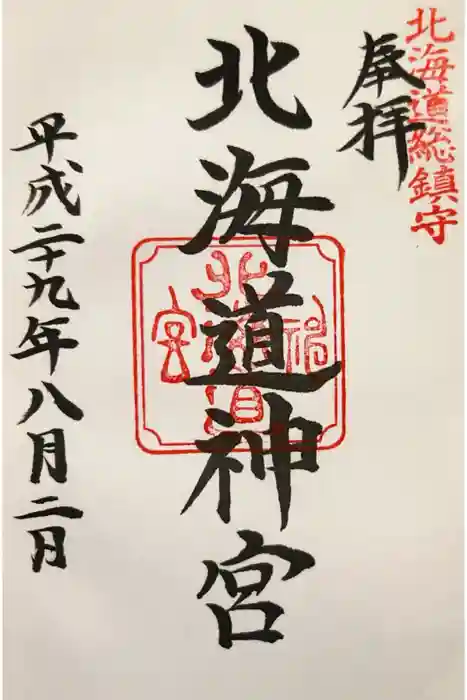 北海道総鎮守
奉拝
北海道神宮
北海道神宮
平成二十九年八月二日